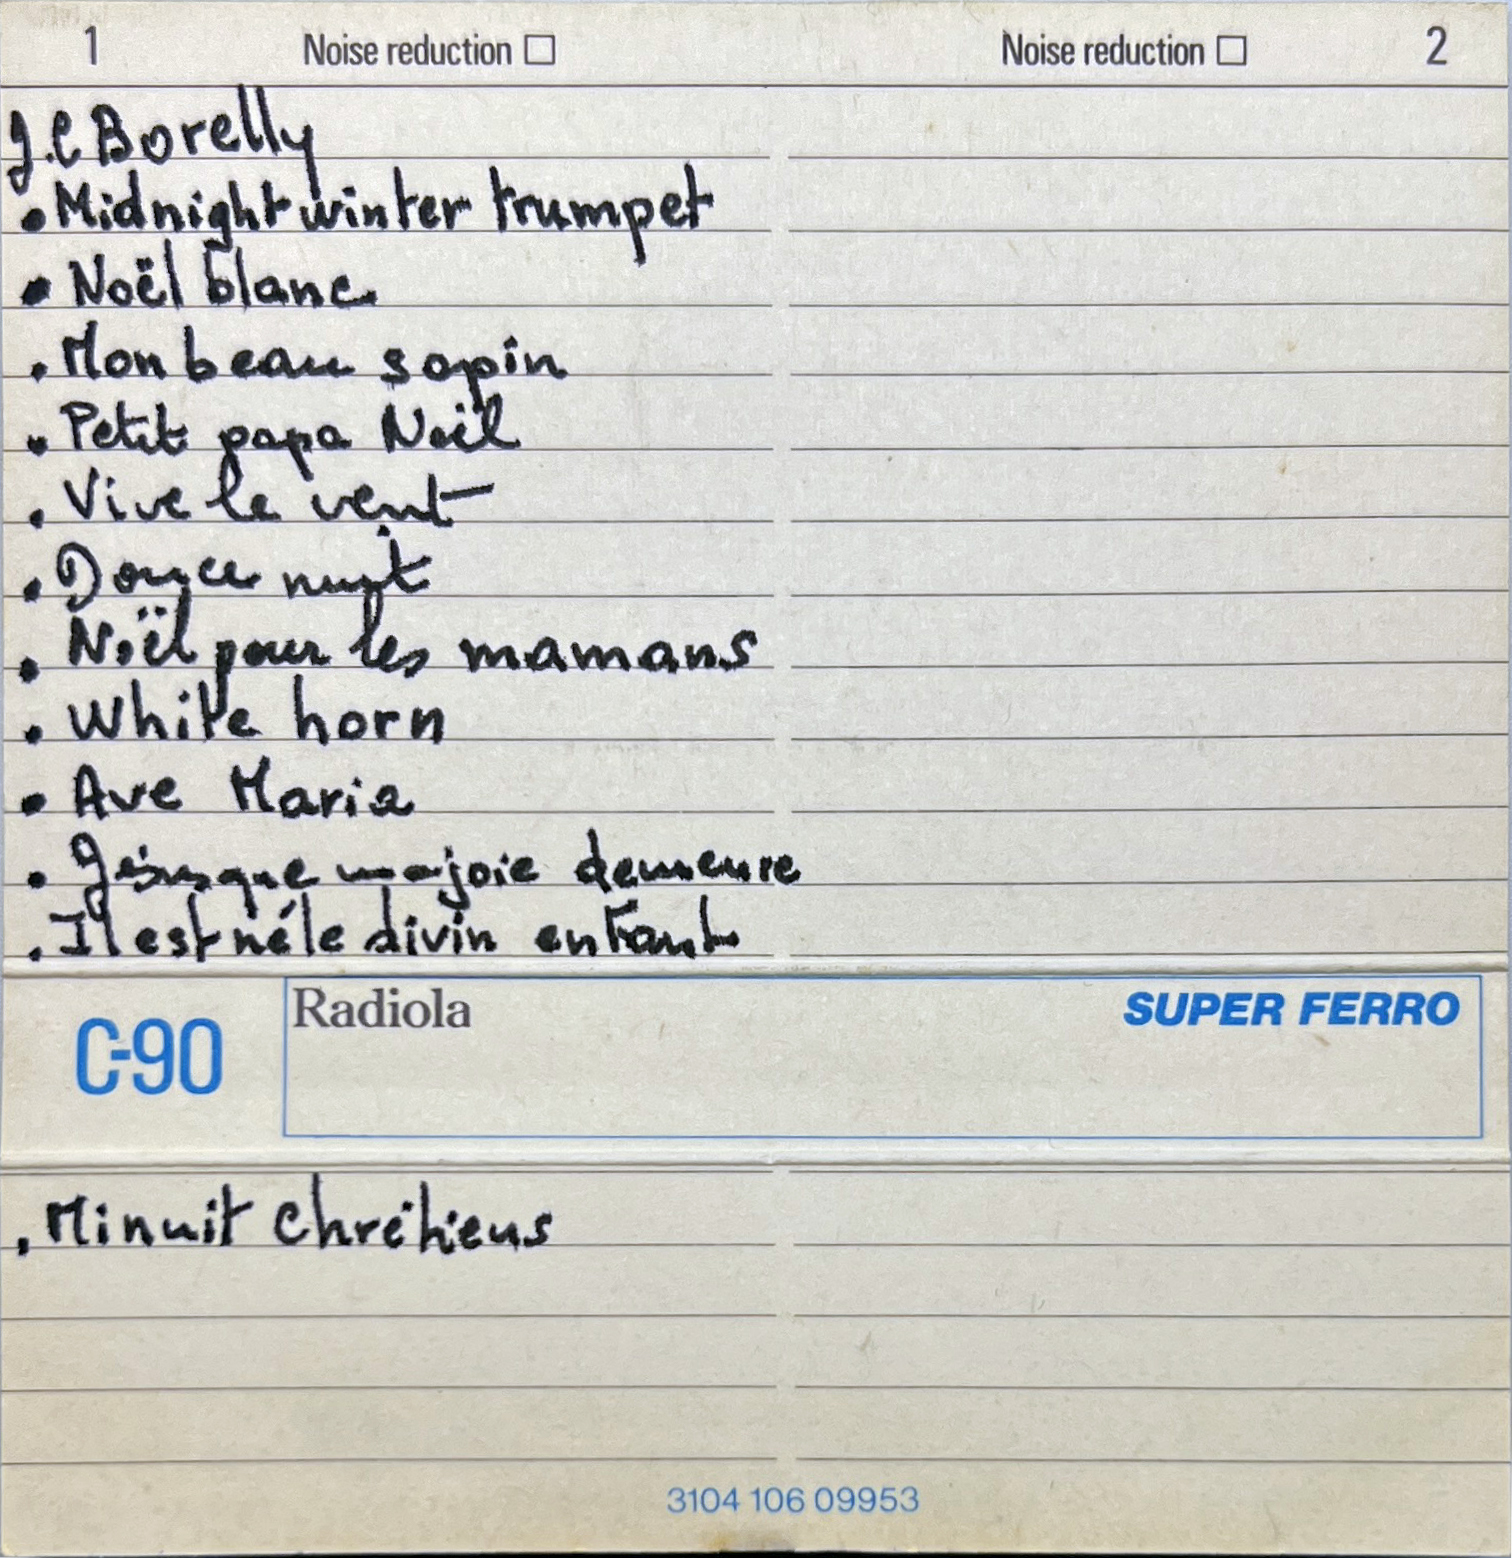 1 Noise reduction Noise reduction 2
J.C Borelly
• Midnight winter trumpet
• Noël blanc
. Mon beau sapin
. Petit papa Noël
. Vive le vent
. Douce nuit
. Noël pour les mamans
. White horn
. Ave Maria
. Jésus que ma joie demeure
. Il est né le divin enfant
C-90 Radiola SUPER FERRO
. Minuit Chrétiens
3104 106 09953